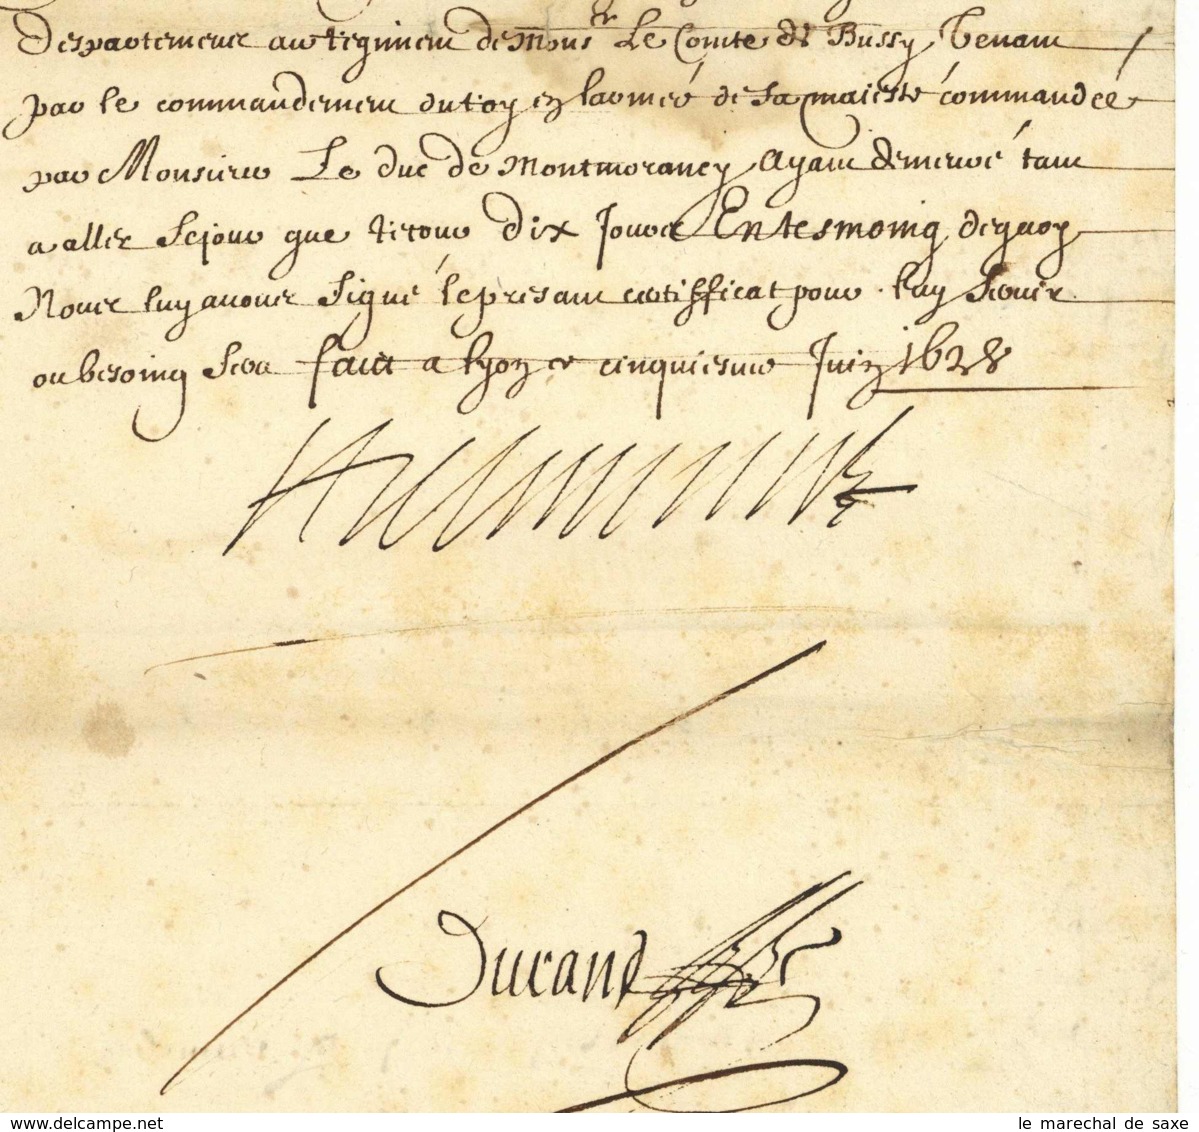 Despartement au regiment de Mons.r Le Comte de Bussy Tenant
par le commandement du roy en larmeé de sa maiesté commandeé
par Monsieur Le duc de Montmorancy Ayant demeuré tant
a aller Sejour que retour Dix Jours En tesmoing dequoy
Nous luy avons Signé le presant certifficat pour luy Servir
ou besoing Sera faict a lyon ce cinquiesme Juin 1628
Durand
delcampe.net
le marechal de saxe